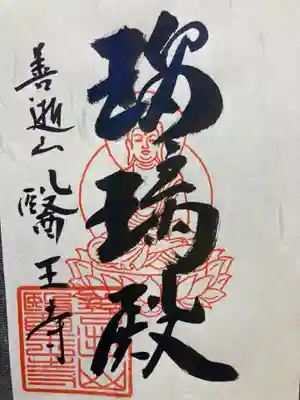 瑠璃殿
善逝山
醫王寺